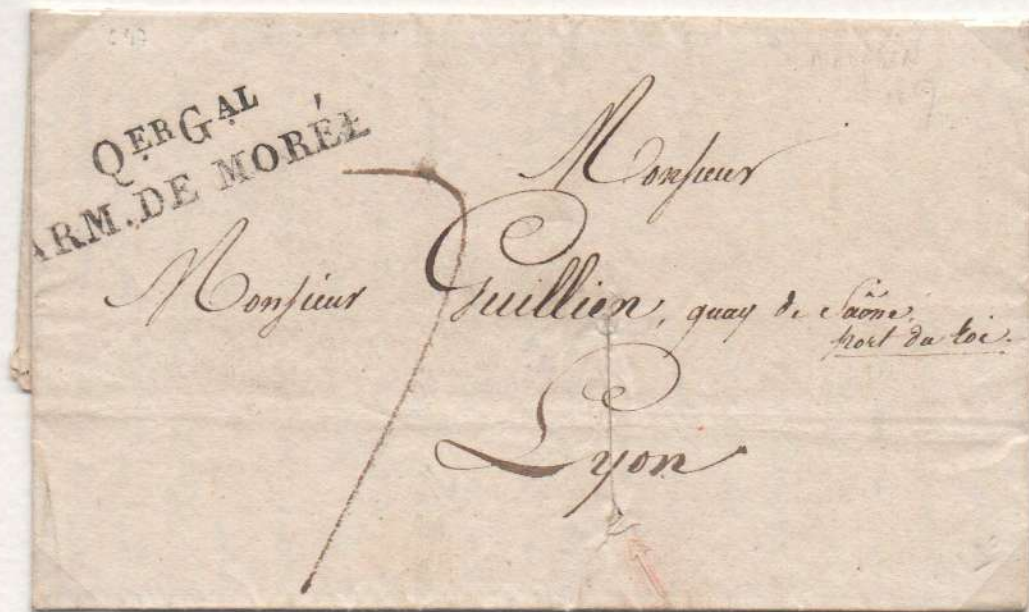 QER GAL
ARM. DE MORÉE
Monsieur
Monsieur Guillien, quay de Saône,
port du Roi.
7
Lyon